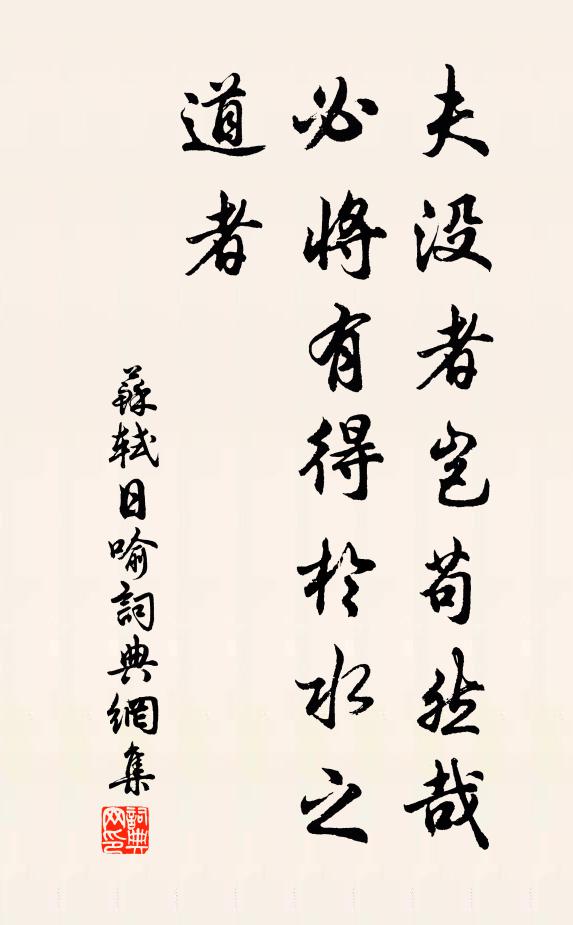 夫没者豈苟然哉
必將有得於水之
道者
蘇軾日喻詞典網集
詞典网印